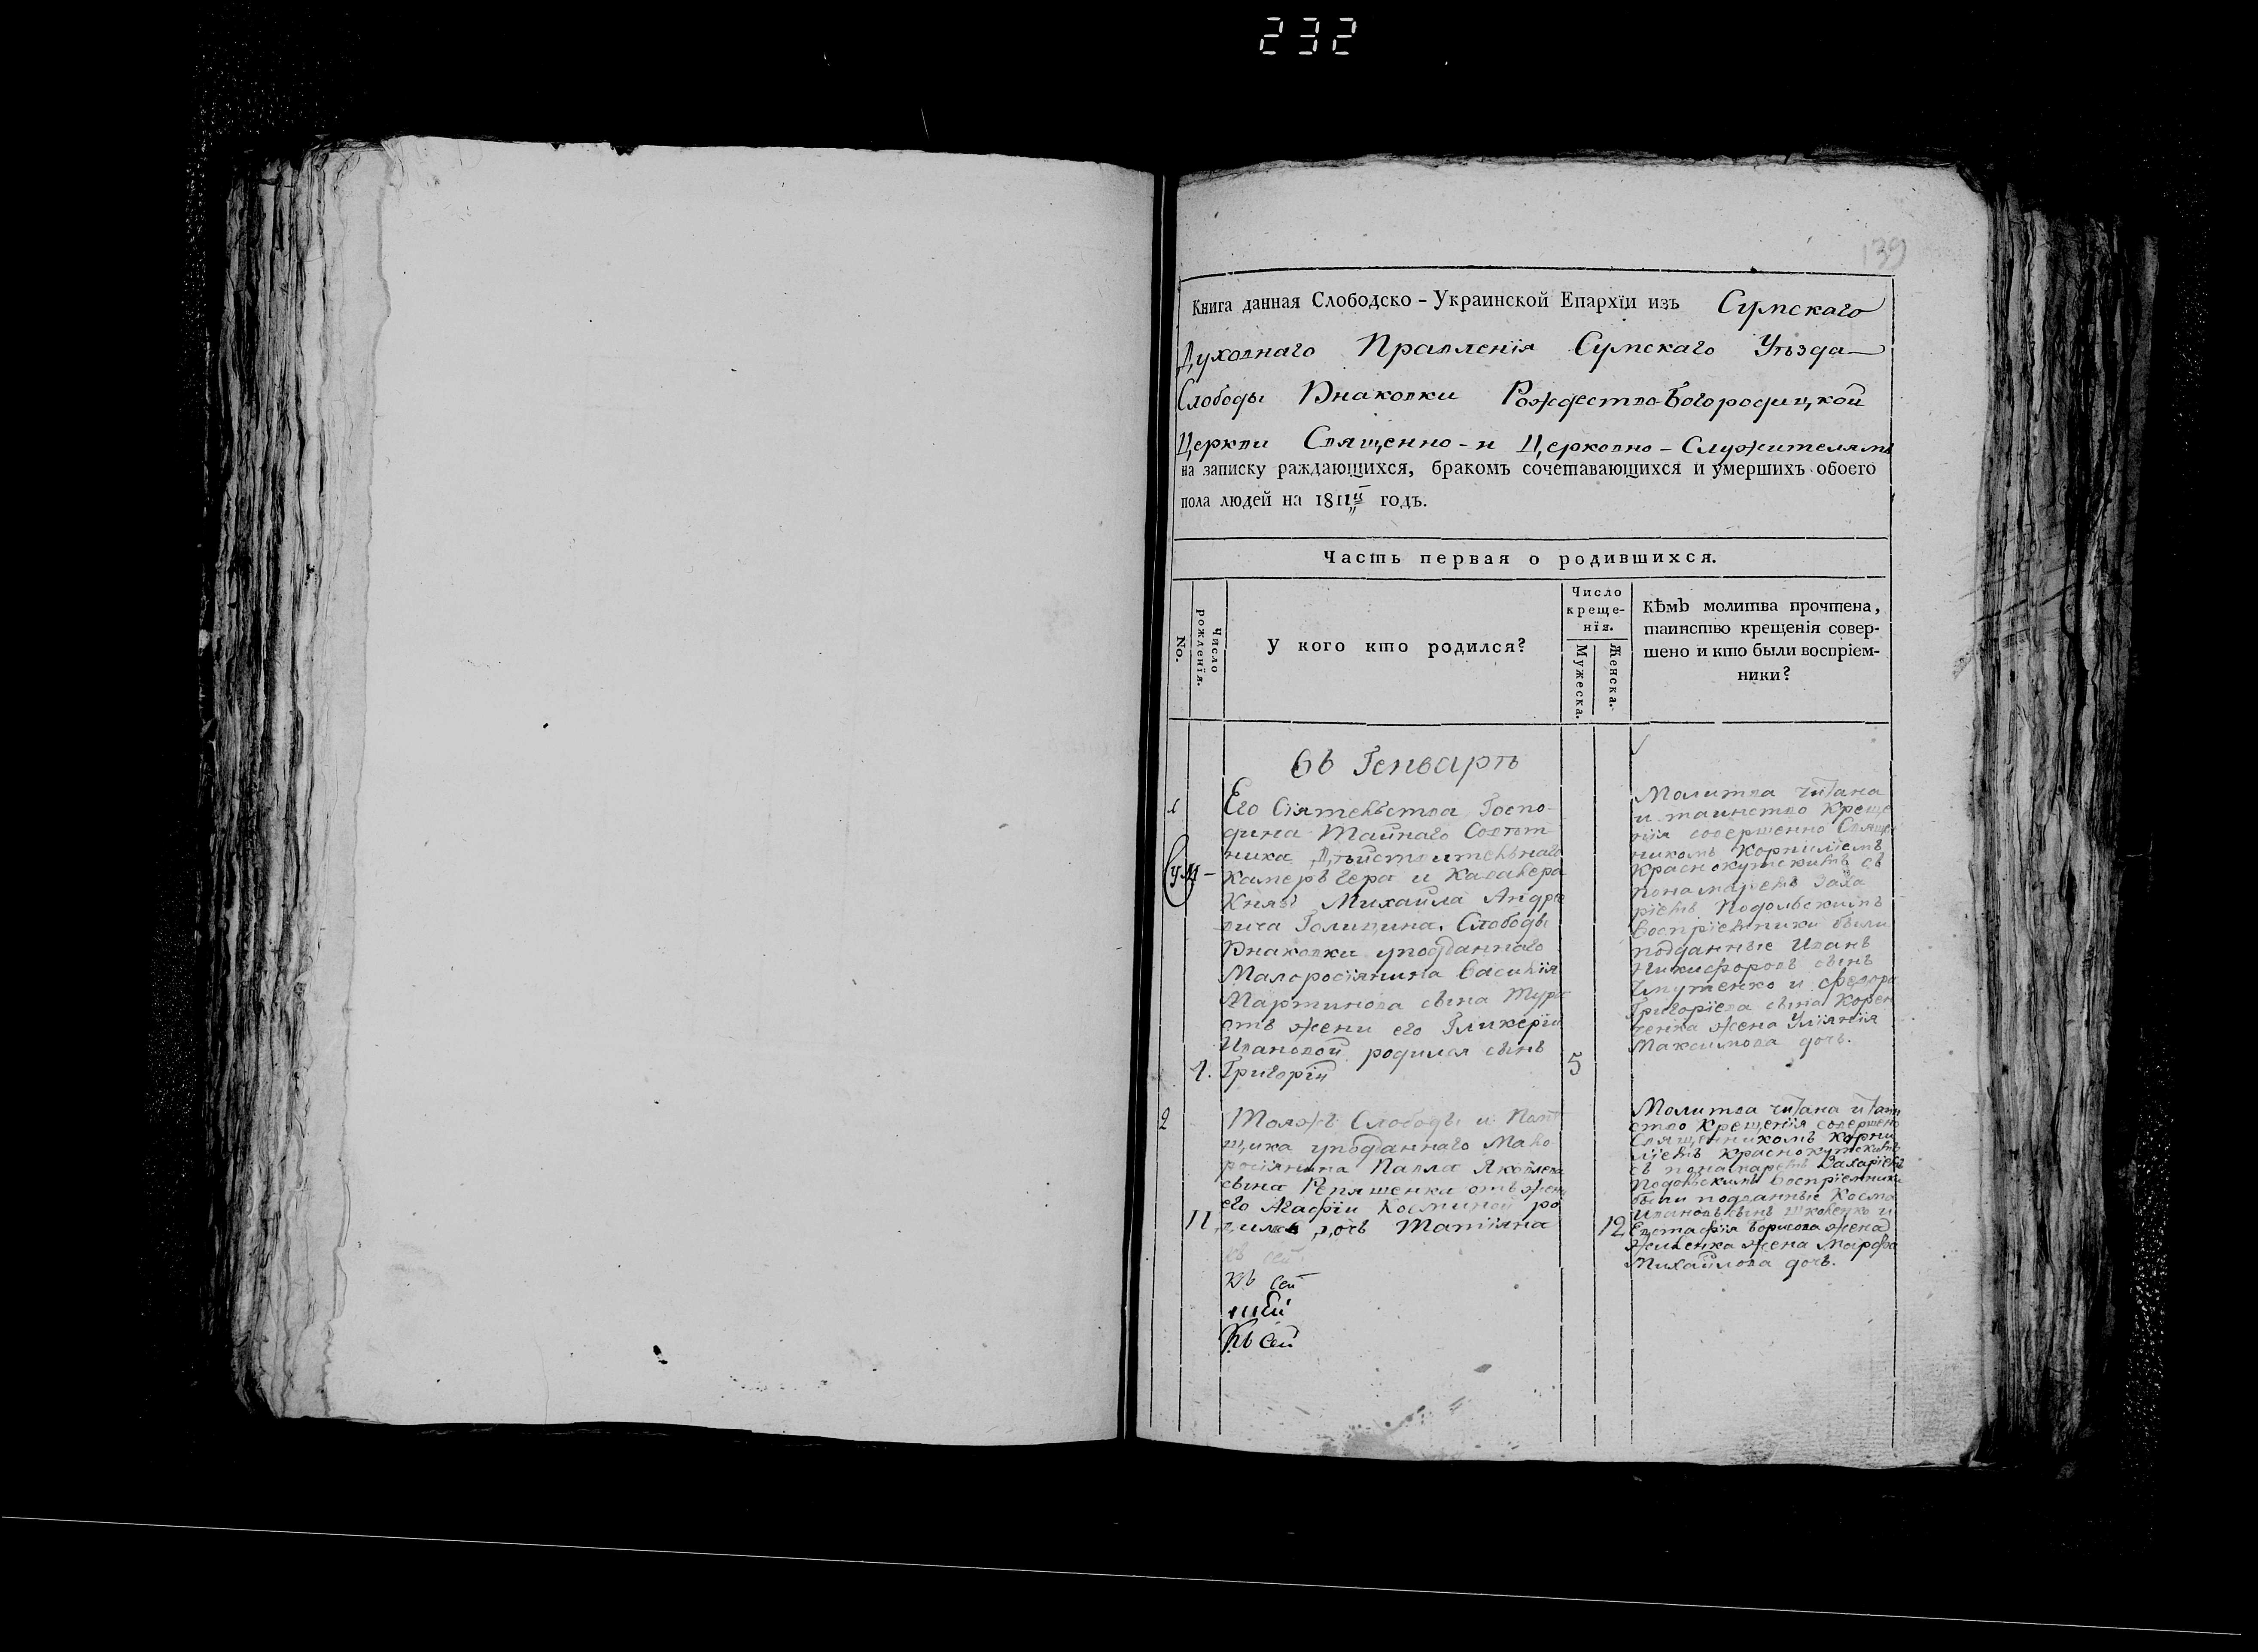 232
139
Книга данная Слободско-Украинской Епархїи изъ Сумскаго
Духовнаго Правленія Сумскаго Уѣзда
Слободы Внаковки Рождество-Богородицкой
Церкви Священно-и Церковно-Служителямъ
на записку раждающихся, бракомъ сочетавающихся и умершихъ обоего
пола людей на 1811й годъ.
Часть первая о родившихся.
No.
Число рожденїя.
У кого кто родился?
Число
креще-
нїя.
Мужеска.
Женска.
Кѣмъ молитва прочтена,
таинство крещенія совер-
шено и кто были воспріем-
ники?
въ Генварѣ
1
Его Сіятельства Госпо-
дина Тайнаго Совѣт
ника Дѣйствительнаго
Камеръгера и Кавалера
Князя Михаила Андре
вича Голицина, Слободы
Внаковки уподданнаго
Малоросіянина Василія
Мартинова сына
отъ жени его Гликеріи
Ивановой родился сынъ
Григорій
1.
5
ум
Молитва читана
и таинство Креще
нія совершенно Свяще
никомъ Корнилїемъ
Краснокутскимъ съ
понамаремъ Заха
ріемъ Подольскимъ
Воспріемники были
подданные Иванъ
Никифоровъ сынъ
и Федора
Григоріева сына Корен
ченка жена Уліянія
Максимова дочь.
2
Тояжъ Слободы и Пом
щика уподданнаго Мало
росіянина Павла Яковлева
сына Репяшенка отъ жени
его Агафіи Косминой ро
дилась дочь Татіяна
11
12
Молитва читана и таин
ство Крещенія совершено
Священникомъ Корни
ліемъ Краснокутскимъ
съ понамаремъ Захаріемъ
Подольскимъ Воспріемники
были подданные Косма
Ивановъ сынъ и
Евстафія Борисова
жена Марфа
Михайлова дочь.
къ сей
къ сей